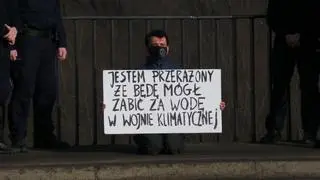 JESTEM PRZERAŻONY
ŻE BĘDĘ MÓGŁ
ZABIĆ ZA WODĘ
W WOJNIE KLIMATYCZNEJ